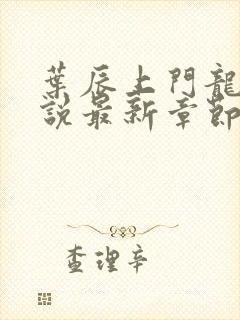 葉辰上門龍
說最新章節
查理辛